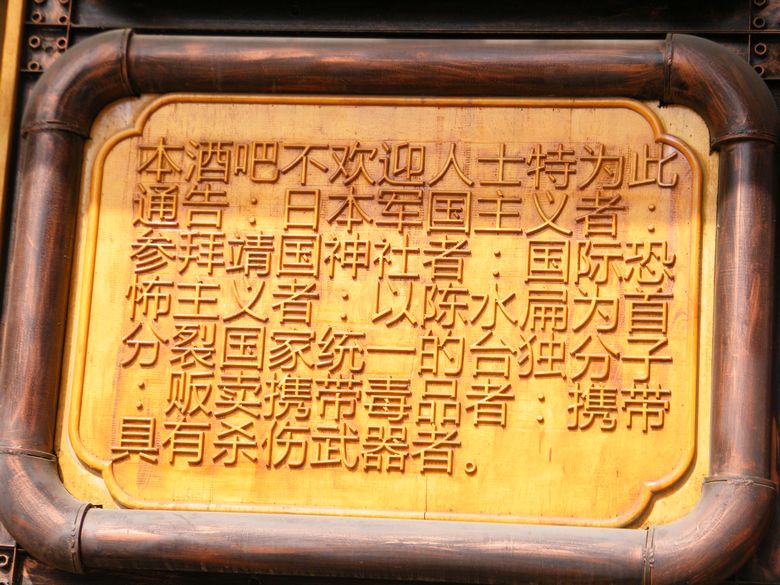 本酒吧不欢迎人士特为此
通告：日本军国主义者：
参拜靖国神社者：国际恐
怖主义者：以陈水扁为直
分裂国家统一的台独分子
：贩卖携带毒品者：携带
具有杀伤武器者。